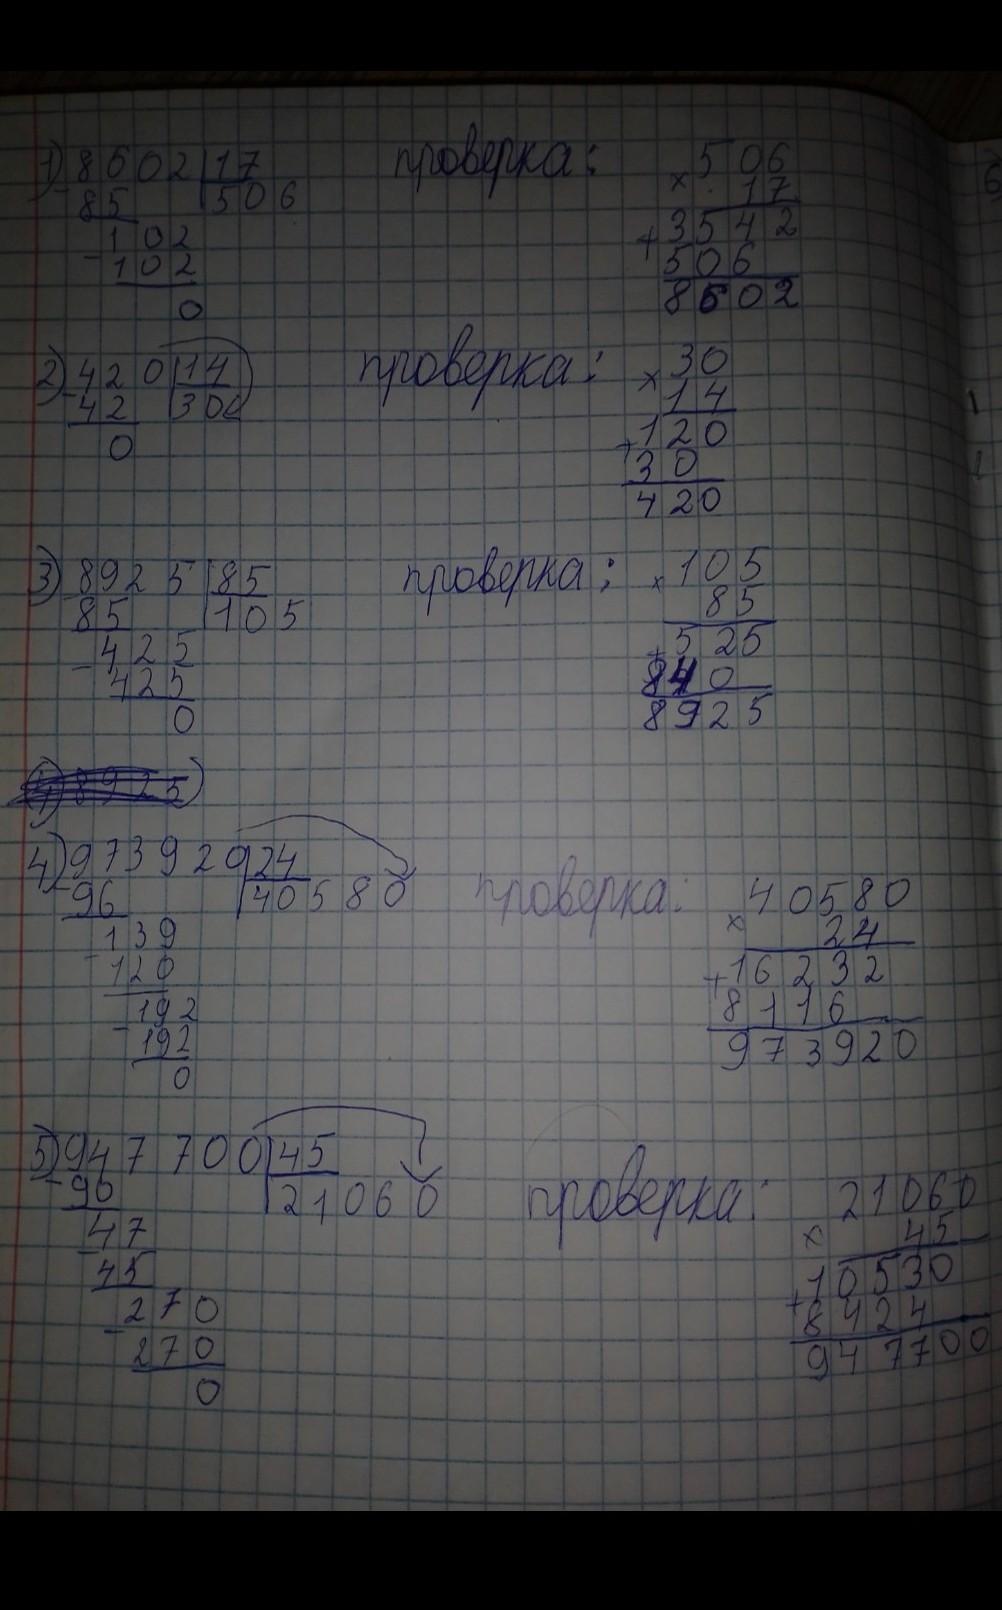 1) 8602 | 17 проверка: 506
- 85 | 506 × 17
102 + 3542
- 102 506
0 8602
2) 420 | 14 проверка: 30
- 42 | 30 × 14
0 + 120
30
420
3) 8925 | 85 проверка: 105
- 85 | 105 × 85
425 + 525
- 425 840
0 8925
4) 973920 | 24 проверка: 40580
- 96 | 40580 × 24
139 + 16232
- 120 8116
192 973920
- 192
0
5) 947700 | 45 проверка: 21060
- 90 | 21060 × 45
47 + 10530
- 45 8424
270 947700
- 270
0